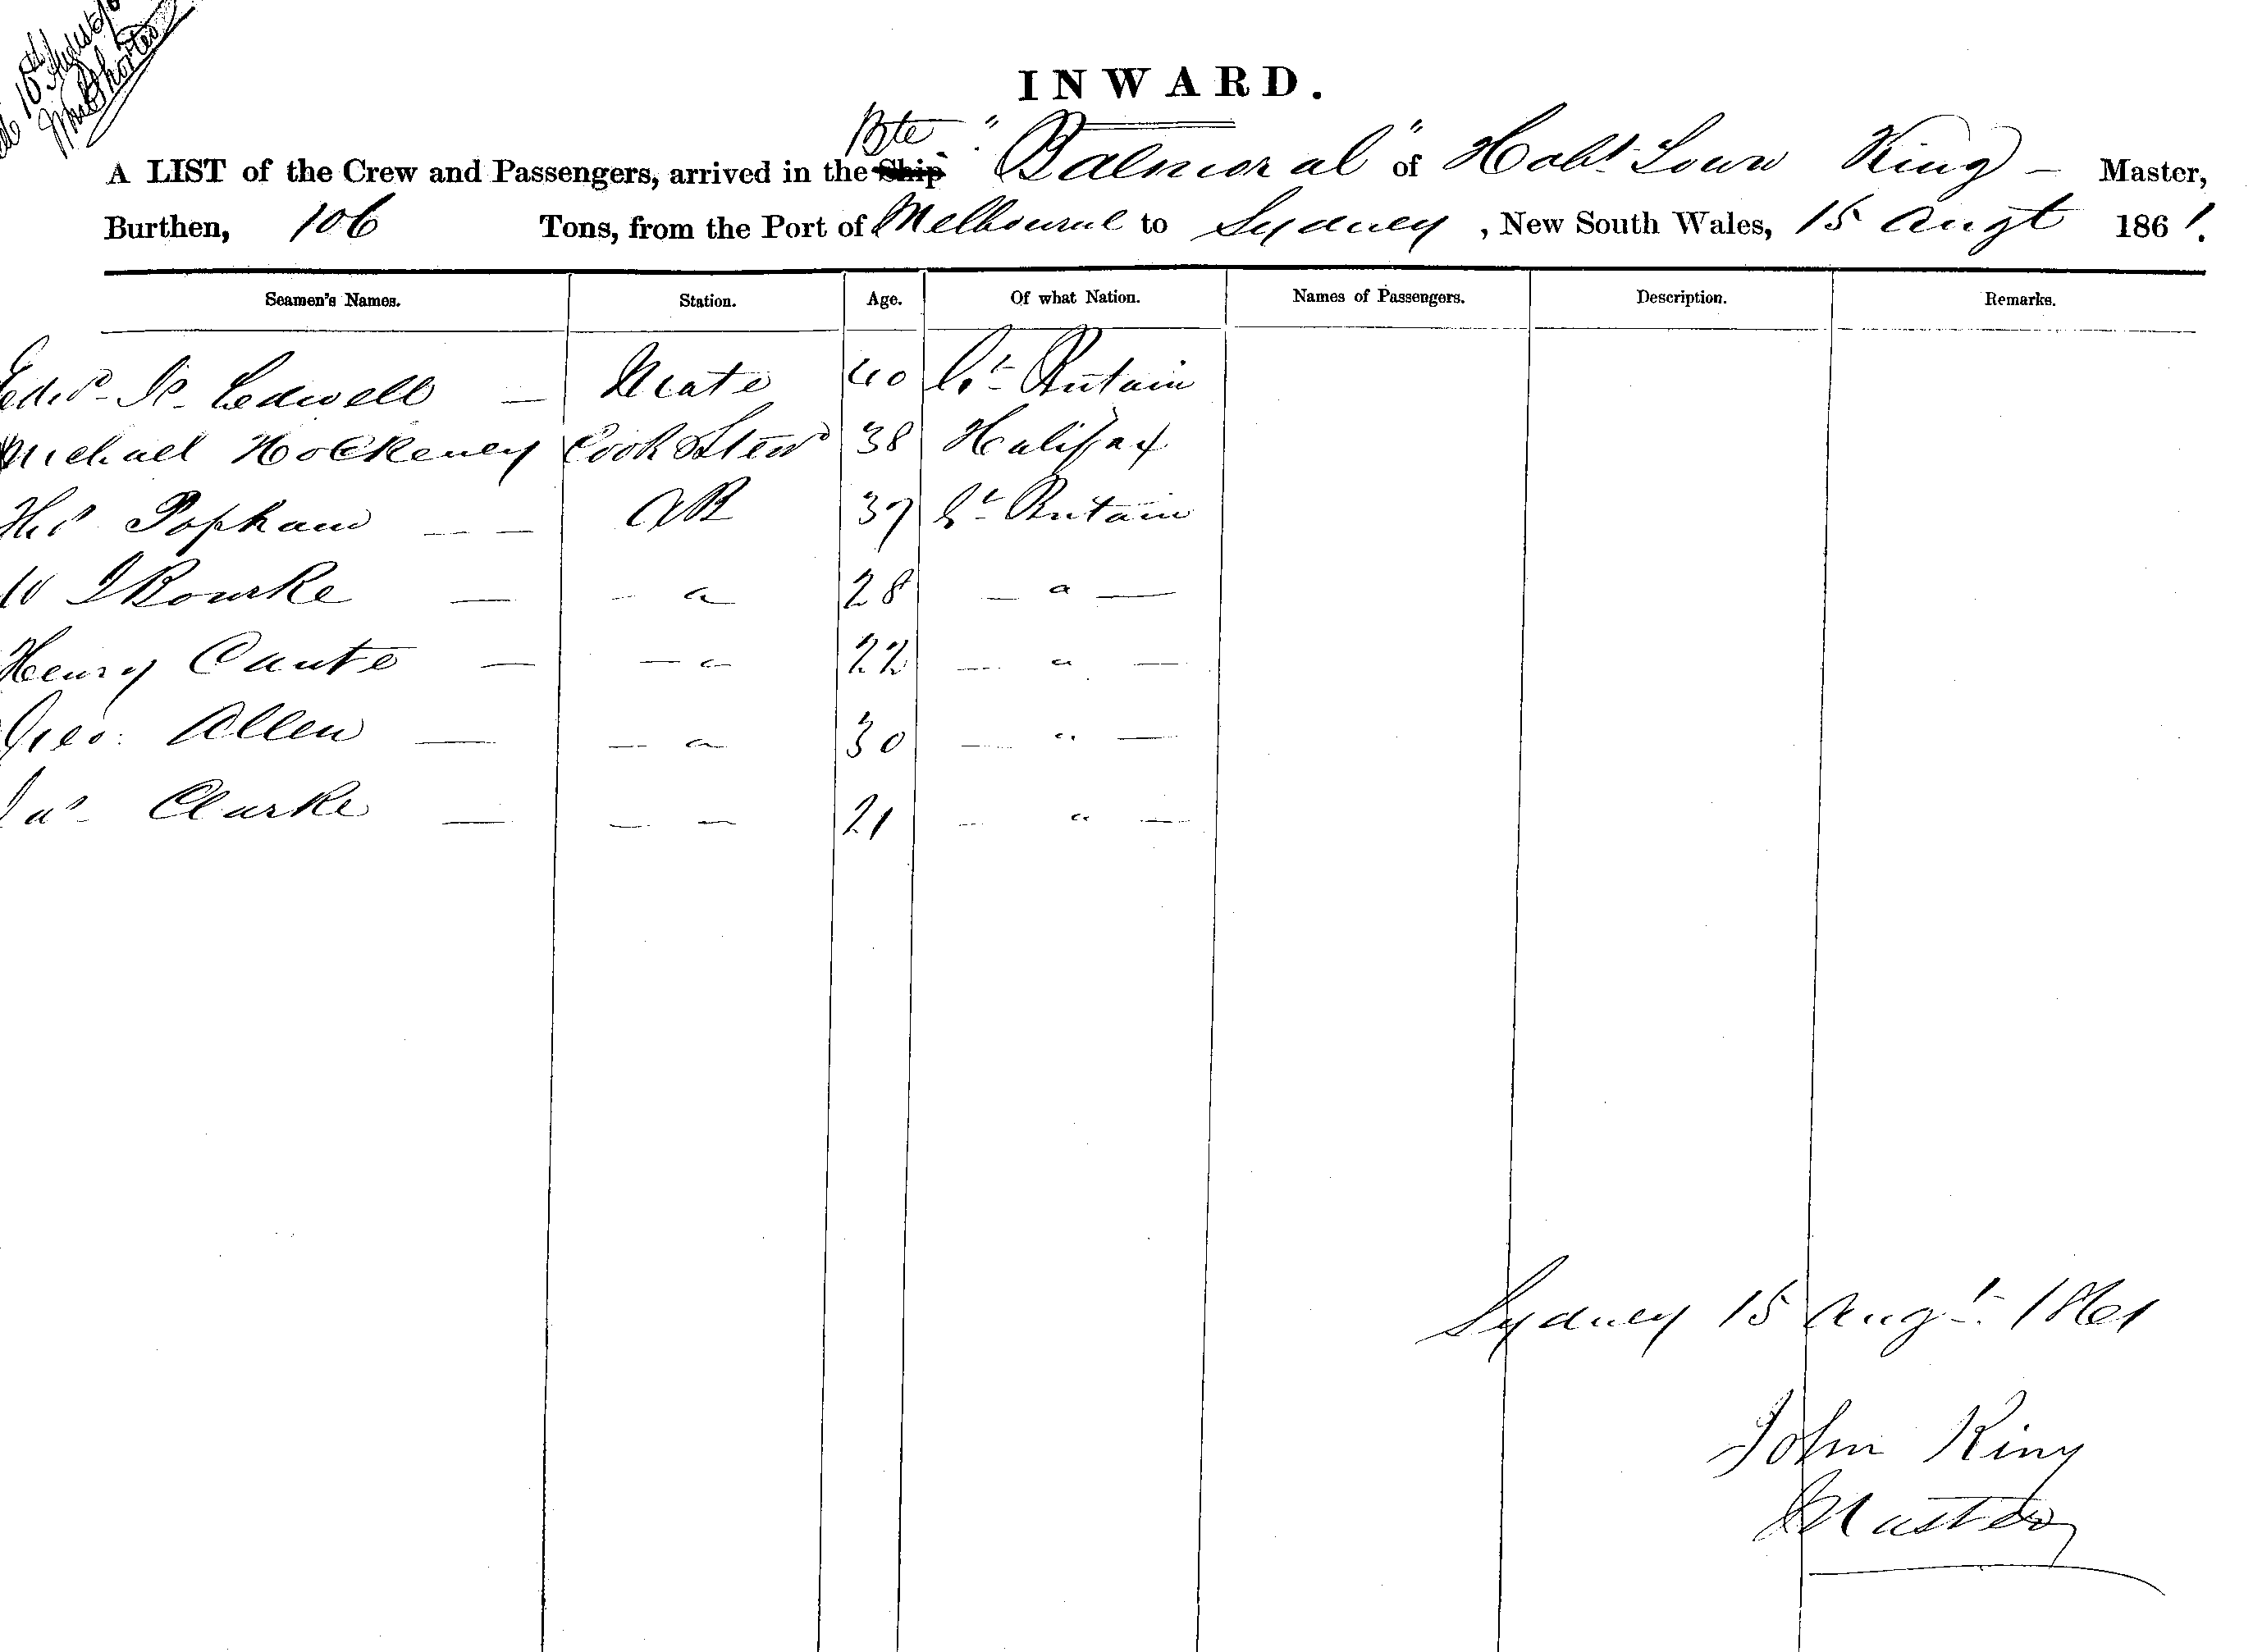 15th August
INWARD.
Bte
A LIST of the Crew and Passengers, arrived in the Ship "Balmoral" of Hobt Town King — Master,
Burthen, 106 Tons, from the Port of Melbourne to Sydney, New South Wales, 15 Augt 1861.
Seamen's Names. Station. Age. Of what Nation. Names of Passengers. Description. Remarks.
Edwd Ledwell — Mate 40 Gt Britain
Michael Hockeney Cook & Stewd 38 Halifax
Popham — — AB 37 Gt Britain
W Rourke — - " 28 — " —
Henry Cante — — " 22 — " —
Geo. Allen — — " 30 — " —
Jas Clarke — — — 21 — " —
Sydney 15 Augt. 1861
John King
Master